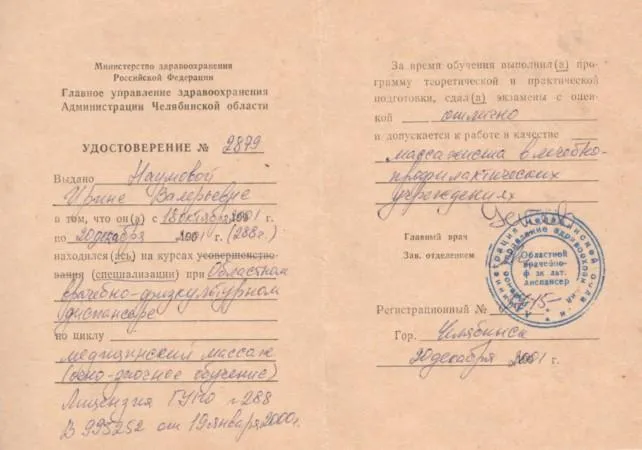 Министерство здравоохранения
Российской Федерации
Главное управление здравоохранения
Администрации Челябинской области
УДОСТОВЕРЕНИЕ № 2879
Выдано Наумовой
Ирине Валерьевне
в том, что он(а) с 18 октября 2001 г.
по 20 декабря 2001 г. (288ч.)
находился (ась) на курсах усовершенство-
вания (специализации) при Областном
врачебно-физкультурном
диспансере
по циклу
медицинский массаж
(очно-заочное обучение)
Лицензия ГУНО г288
В 995252 от 19 января 2000г.
За время обучения выполнил(а) про-
грамму теоретической и практической
подготовки, сдал(а) экзамены с оцен-
кой отлично
и допускается к работе в качестве
массажиста в лечебно-
профилактических
учреждениях
Главный врач
Зав. отделением
Областной
врачебно-
ф зк льт.
диспансер
Регистрационный №
Гор. Челябинск
20 декабря 2001 г.